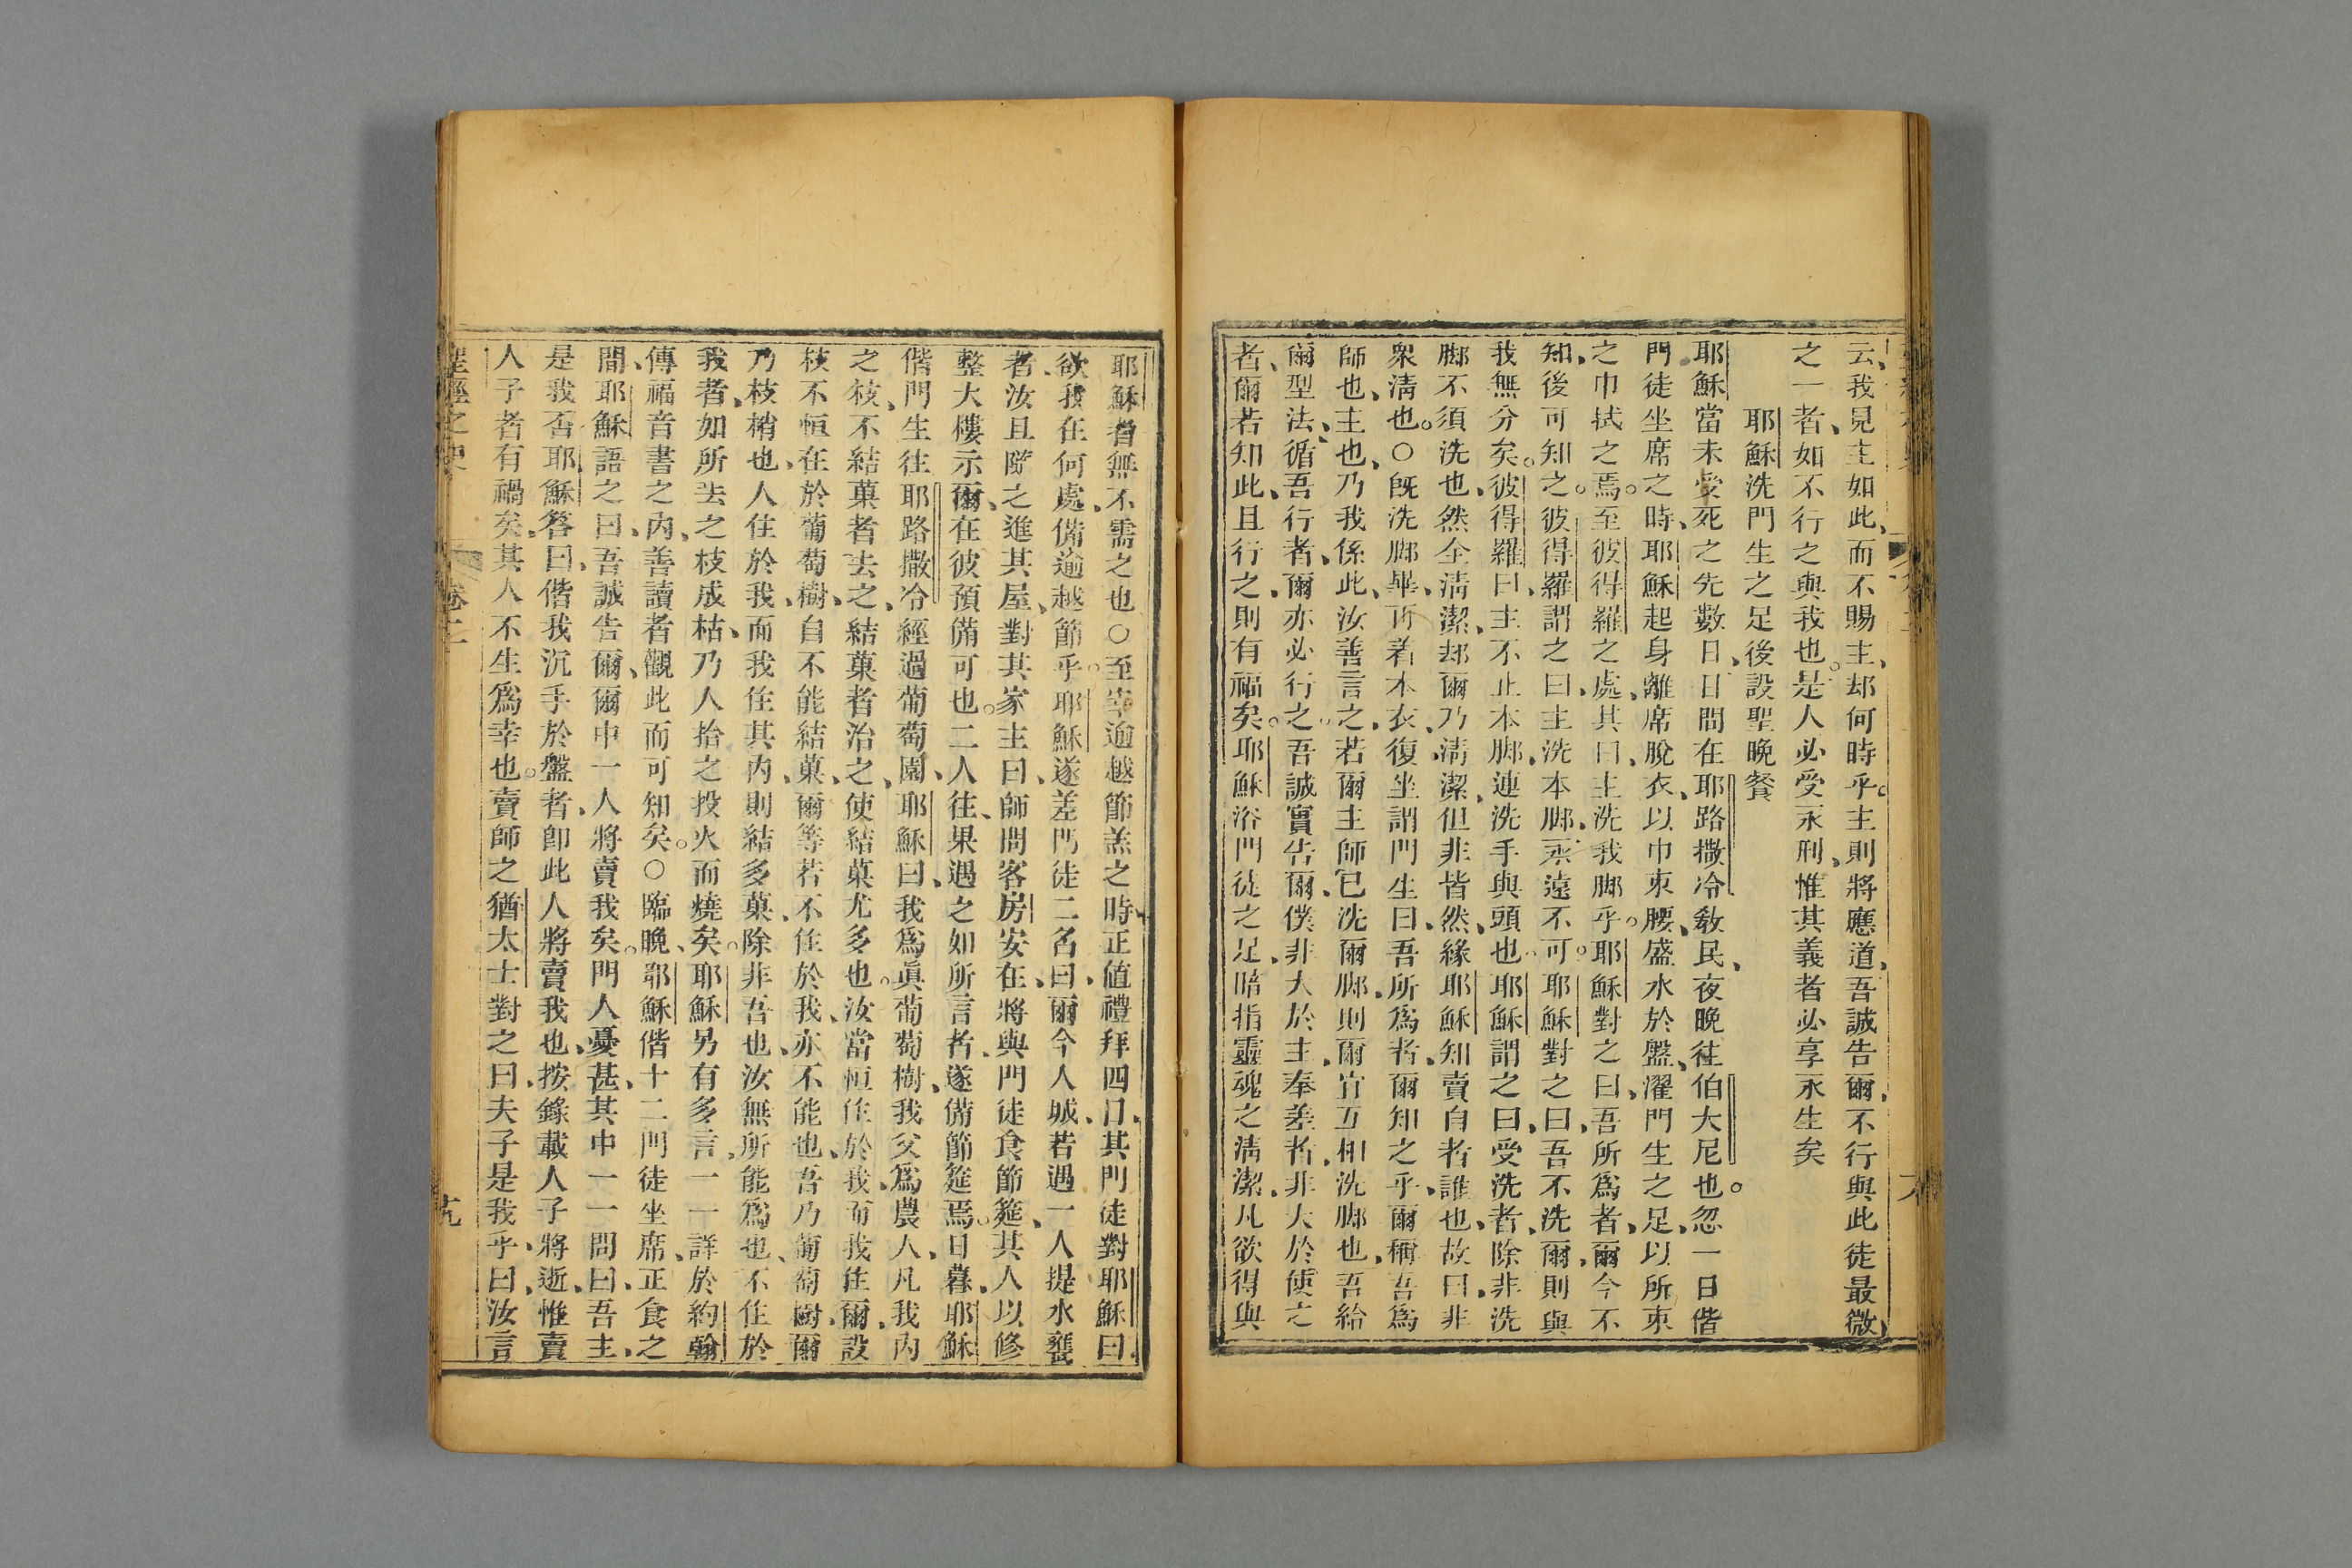 云、我見主如此、而不賜主、却何時乎。主則將應道、吾誠告爾、不行與此徒最微、
之一者、如不行之與我也。是人必受永刑、惟其義者必享永生矣
耶穌洗門生之足後設聖晚餐
耶穌當未受死之先數日、日間在耶路撒冷教民、夜晚往伯大尼也。忽一日偕
門徒坐席之時、耶穌起身離席脫衣、以巾束腰、盛水於盤、濯門生之足、以所束
之巾拭之焉。至彼得羅之處、其曰、主洗我脚乎。耶穌對之曰、吾所為者、爾今不
知、後可知之。彼得羅謂之曰、主洗本脚、永遠不可。耶穌對之曰、吾不洗爾、則與
我無分矣。彼得羅曰、主不止本脚、連洗手與頭也。耶穌謂之曰、受洗者、除非洗
脚不須洗也、然全清潔、却爾乃清潔、但非皆然、緣耶穌知賣自者誰也、故曰、非
衆清也。○既洗脚畢、再着本衣、復坐謂門生曰、吾所為者、爾知之乎、爾稱吾為
師也、主也、乃我係此、汝善言之、若爾主師已洗爾脚、則爾宜互相洗脚也、吾給
爾型法、循吾行者、爾亦必行之。吾誠實告爾、僕非大於主、奉差者、非大於使之
者、爾若知此、且行之、則有福矣。耶穌浴門徒之足、暗指靈魂之清潔、凡欲得與
耶穌者無不需之也○至宰逾越節羔之時、正值禮拜四日、其門徒對耶穌曰、
欲我在何處、備逾越節乎。耶穌遂差門徒二名、曰、爾今入城、若遇一人提水甕
者、汝且隨之進其屋、對其家主曰、師問客房安在、將與門徒食節筵、其人以修
整大樓示爾、在彼預備可也。二人往、果遇之如所言者、遂備節筵焉。日暮、耶穌
偕門生往耶路撒冷經過葡萄園、耶穌曰、我為眞葡萄樹、我父為農人、凡我內
之枝、不結菓者去之、結菓者治之、使結菓尤多也。汝當恒住於我、而我住爾、設
枝不恒在於葡萄樹、自不能結菓、爾等若不住於我、亦不能也、吾乃葡萄樹、爾
乃枝梢也、人住於我、而我住其內、則結多菓、除非吾也、汝無所能為也、不住於
我者、如所去之枝成枯、乃人拾之投火而燒矣。耶穌另有多言、一一詳於約翰
傳福音書之內、善讀者觀此而可知矣。○臨晚、耶穌偕十二門徒坐席、正食之
間、耶穌語之曰、吾誠告爾、爾中一人將賣我矣。門人憂甚、其中一一問曰、吾主、
是我否、耶穌答曰、偕我沉手於盤者、卽此人將賣我也、按錄載人子將逝、惟賣
人子者有禍矣、其人不生為幸也。賣師之猶太士對之曰、夫子是我乎、曰、汝言
聖經之史 卷二